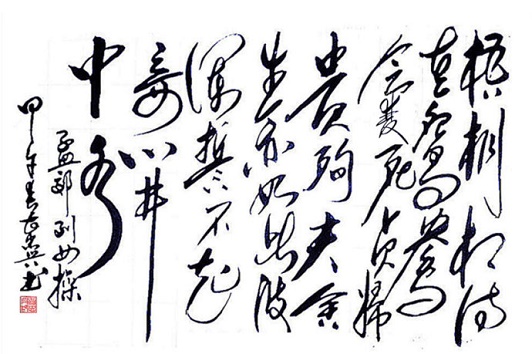 梧桐相待
老鴛鴦
會雙死貞婦
貴殉夫舍
生亦如此波
瀾誓不起
妾心井
中水
孟郊列女操
甲午春書